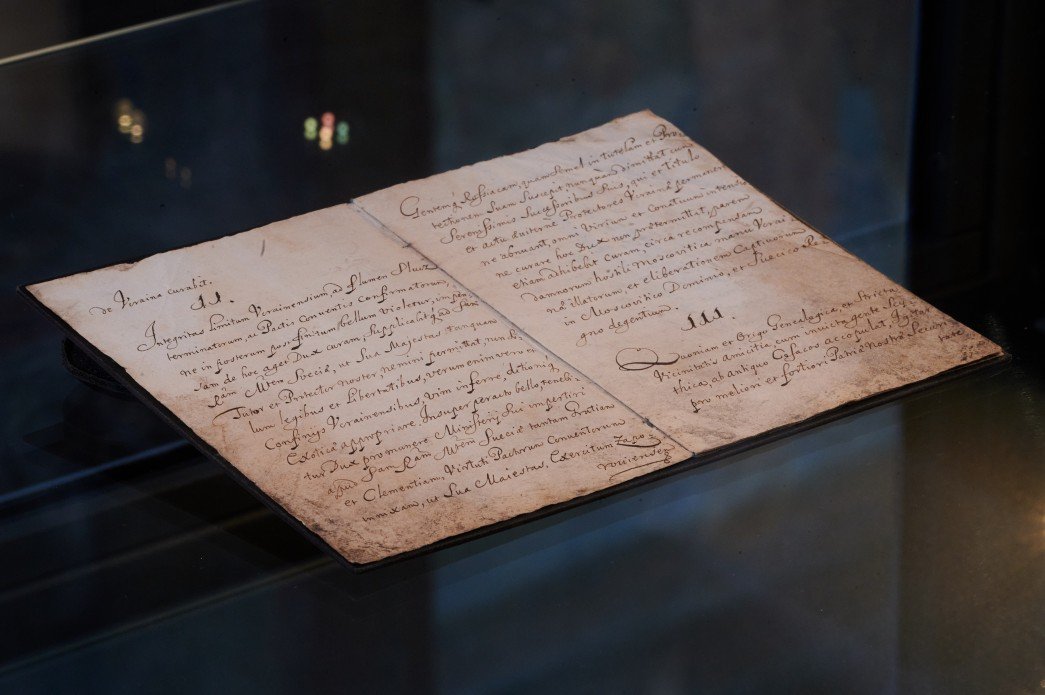 de Ucraina curabit.
II.
Integritas limitum Ucrainensium, ad flumen Slucz
terminatorum, ac Pactis Conventis confirmatorum,
ne in posterum post finitum bellum violetur, in
sam de hoc aget Dux curam, supplicabit
Ram Mtem Sveciæ, ut Sua Majestas tanquam
Tutor et Protector noster nemini permittat, non
lum legibus et Libertatibus, verum enimvero et
Confinijs Ucrainensibus, vim inferre,
Exoticæ appropriare. Insuper peracto bello, tenebi-
tur Dux promovere Ministerij Sui impertiri
apud San Ram Mtem Sveciæ tantam Gratiam
et Clementiam, Virtuti Pactorum Conventorum
innixam, ut Sua Maiestas, Exercitum Zapo-
roviensem
Gentemq Rossiacam, quam semel in tutelam et Pro-
tectionem Suam Suscepit nunquam dimittat cum
Serenissimis Successoribus Suis, qui et titulo
et actu diuternè Protectores Ucrainæ permanere
ne abnuant, omni virium et Conatuum intensione
ne curare hoc Dux non prætermittat, parem
etiam adhibebit Curam, circa recompensam
damnorum hostili Moscovitica manu Ucrai-
næ illatorum, et eliberationem Captivorum
in Moscovitico Dominio, et Suecico Re-
gno degentium.
III.
Quoniam et Origo Genealogica, et Stricta
Vicinitatis amicitia cum invictagente
thica, ab antiquo Cosacos accopulat,
pro meliori et fortiori, Patriæ Nostræ